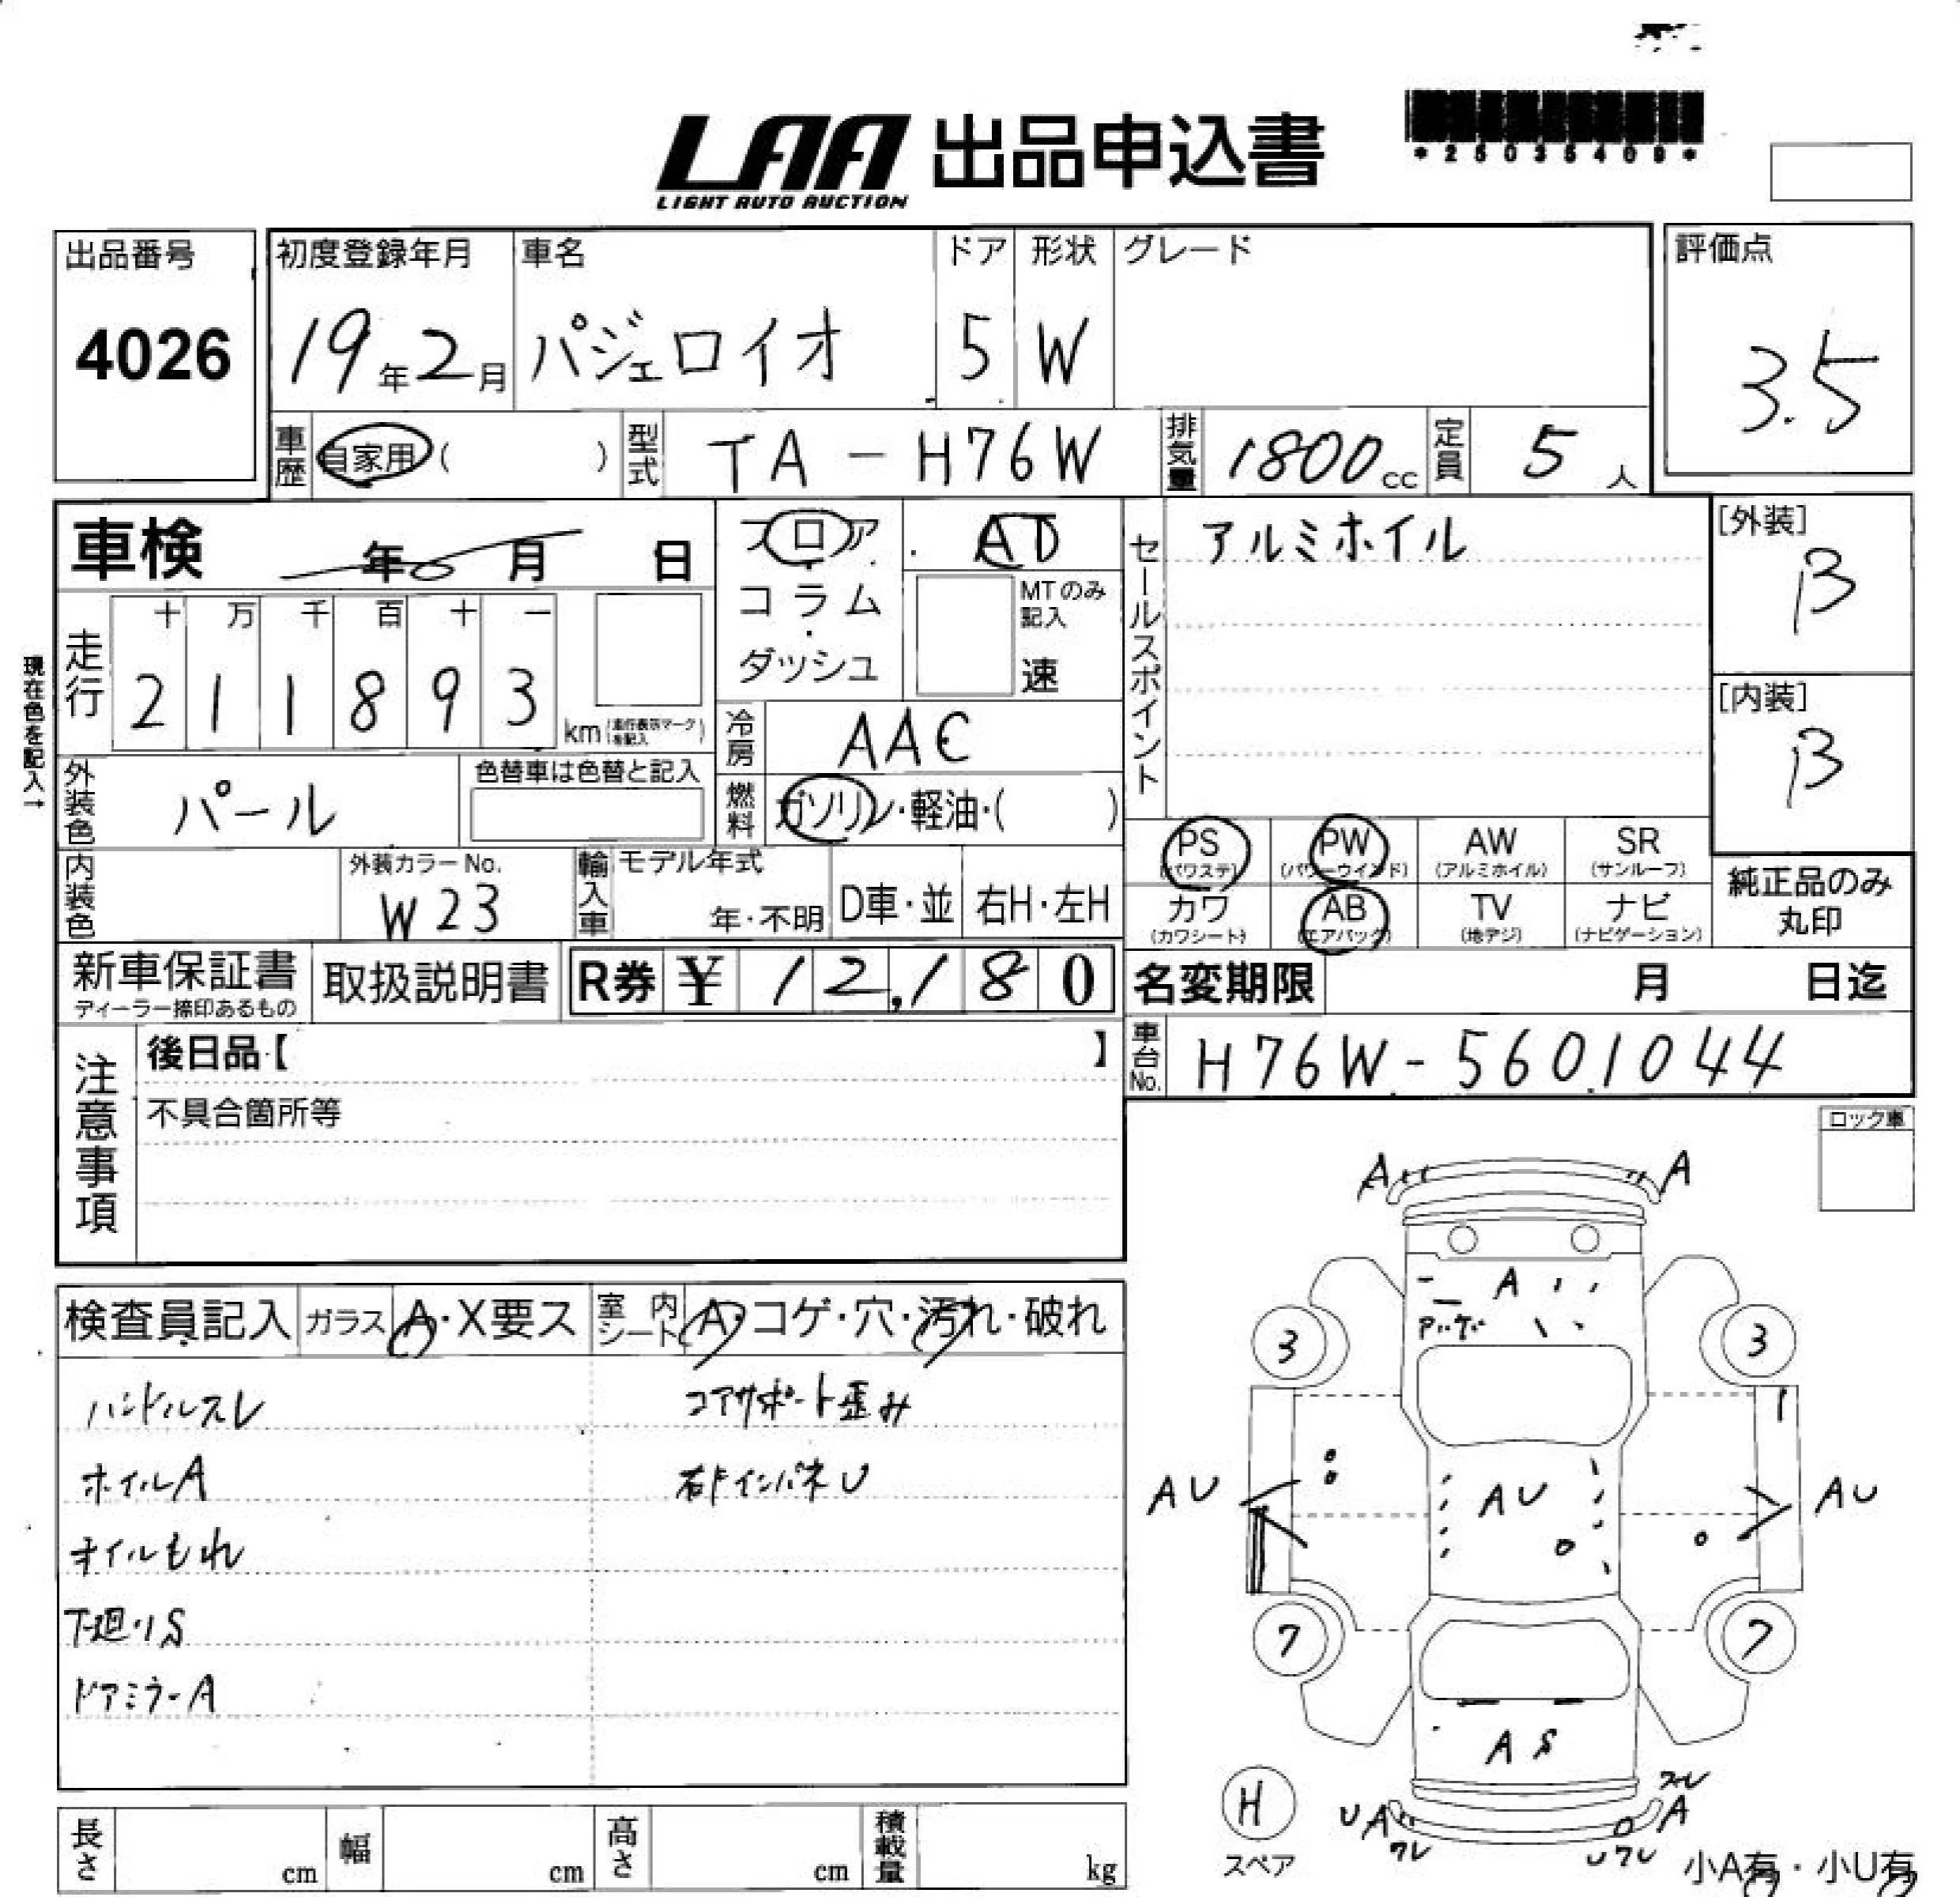 LAA 出品申込書
LIGHT AUTO AUCTION
*25035409*
出品番号 初度登録年月 車名 ドア 形状 グレード 評価点
4026 19年2月 パジェロイオ 5 W 3.5
車歴 自家用( ) 型式 TA-H76W 排気量 1800cc 定員 5人
車検 年 月 日 フロア・コラム・ダッシュ AT
MTのみ記入 速
セールスポイント アルミホイル
[外装] B
現在色を記入→
走行 十 万 千 百 十 一
2 1 1 8 9 3 km (走行表示マークを記入)
[内装] B
冷房 AAC
外装色 パール 色替車は色替と記入
燃料 ガソリン・軽油・( )
PS (パワステ) PW (パワーウインド) AW (アルミホイル) SR (サンルーフ)
カワ (カワシート) AB (エアバッグ) TV (地デジ) ナビ (ナビゲーション)
純正品のみ丸印
内装色 外装カラーNo. W23 輸入車 モデル年式 年・不明 D車・並 右H・左H
新車保証書 ディーラー捺印あるもの 取扱説明書 R券 ¥ 12,180
名変期限 月 日迄
車台No. H76W-5601044
注意事項 後日品【 】
不具合箇所等
ロック車
検査員記入 ガラス A・X要ス 室内シート A・コゲ・穴・汚れ・破れ
ハンドルスレ コアサポート歪み
ホイルA 右FインパネU
オイルもれ
下廻りS
ドアミラーA
A A
A
3 3
AU AU AU
7 7
A S
H スペア
UA ワレ
A
Uワレ
小A有・小U有
長さ cm 幅 cm 高さ cm 積載量 kg